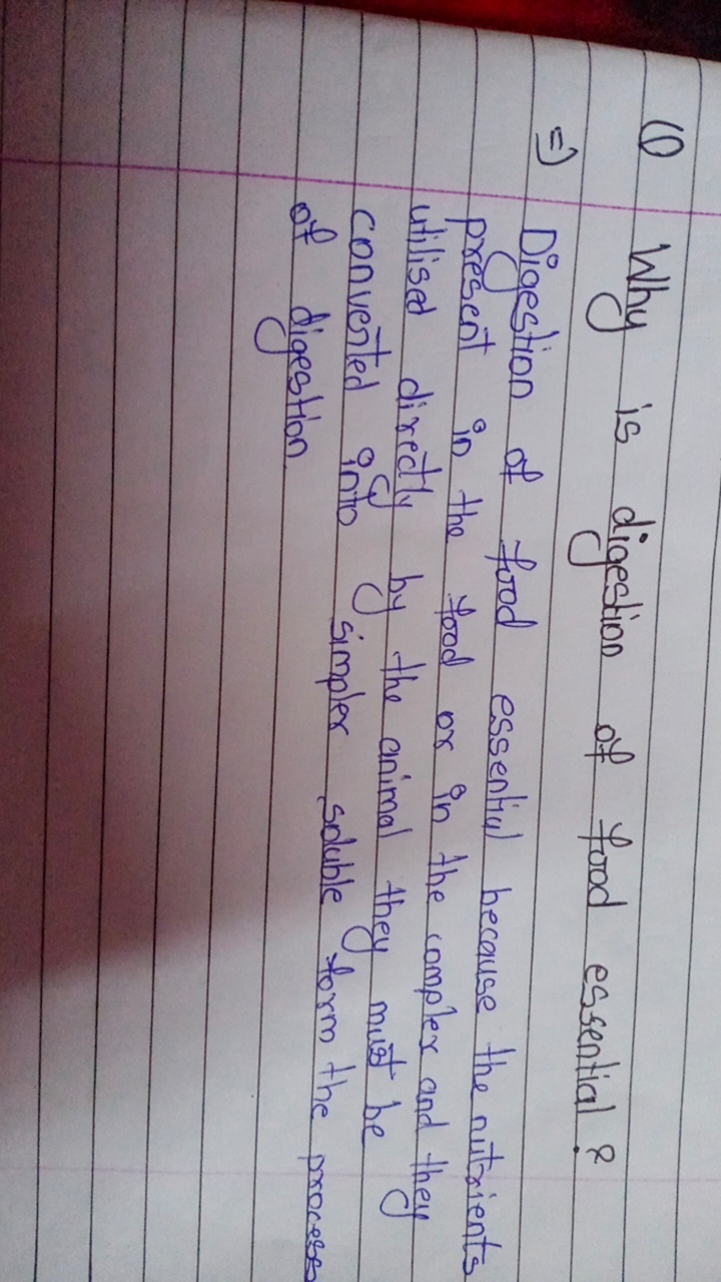 (1) Why is digestion of food essential?
=) Digestion of food essential because the nutrients
present in the food or in the complex and they
utilised directly by the animal they must be
converted into simpler soluble form the process
of digestion.